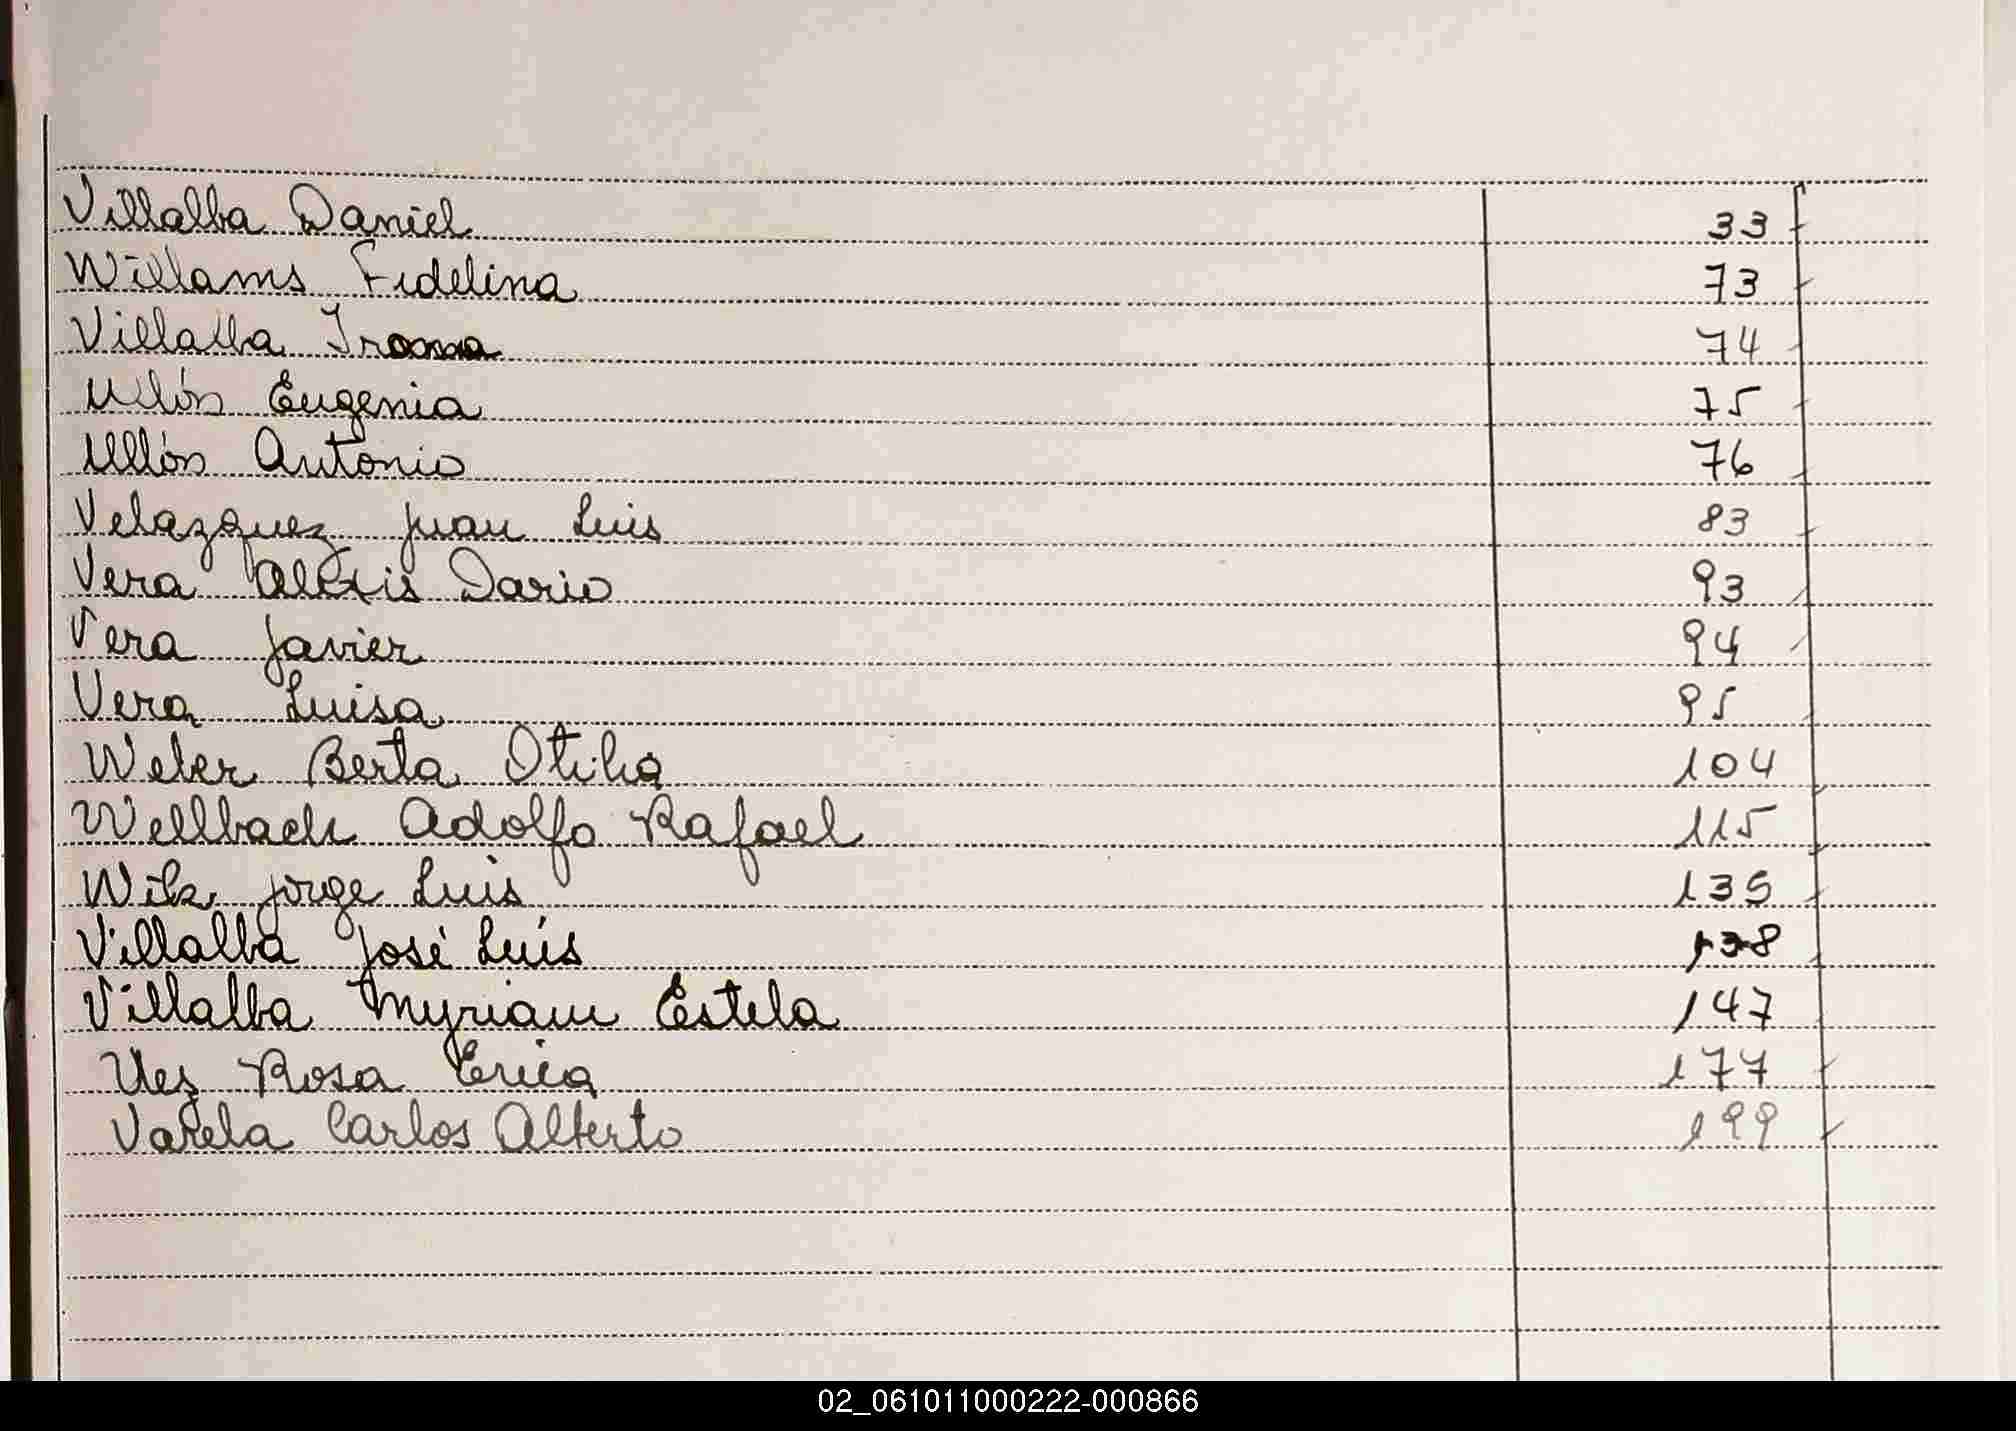 Villalba Daniel 33
Willams Fidelina 73
Villalba 74
Ullón Eugenia 75
Ullón Antonio 76
Velazquez Juan Luis 83
Vera Alexis Dario 93
Vera Javier 94
Vera Luisa 95
Weber Berta Otilia 104
Wellbach Adolfo Rafael 115
Wilk Jorge Luis 135
Villalba José Luís 138
Villalba Myriam Estela 147
Uez Rosa Erica 177
Varela Carlos Alberto 199
02_061011000222-000866